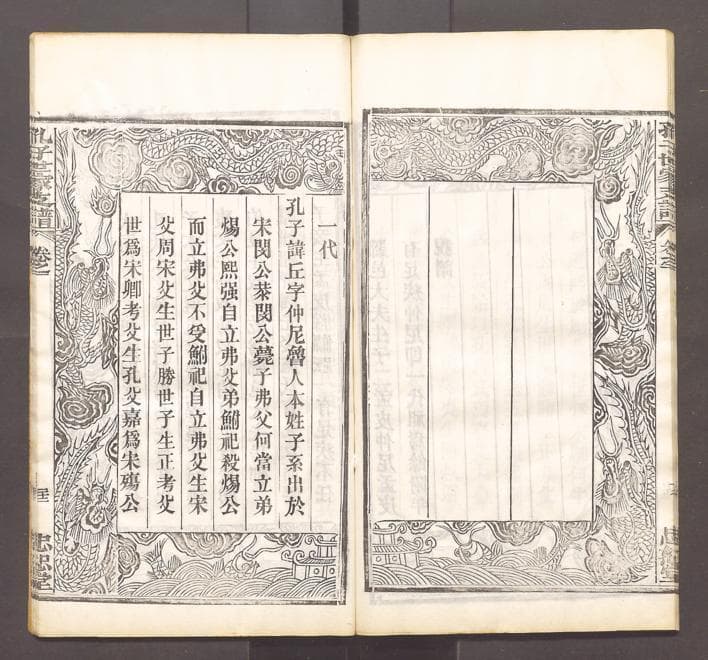 孔子世家支譜
一代
孔子諱丘字仲尼魯人本姓子系出於
宋閔公恭閔公薨子弗父何當立弟
煬公熙强自立弗父弟鮒祀殺煬公
而立弗父不受鮒祀自立弗父生宋
父周宋父生世子勝世子生正考父
世爲宋卿考父生孔父嘉爲宋殤公
孔子世家支譜
忠恕堂